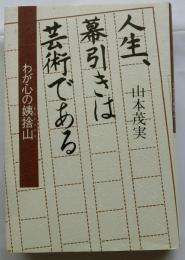 人生、
幕引きは
芸術である
わが心の姨捨山
山本茂実